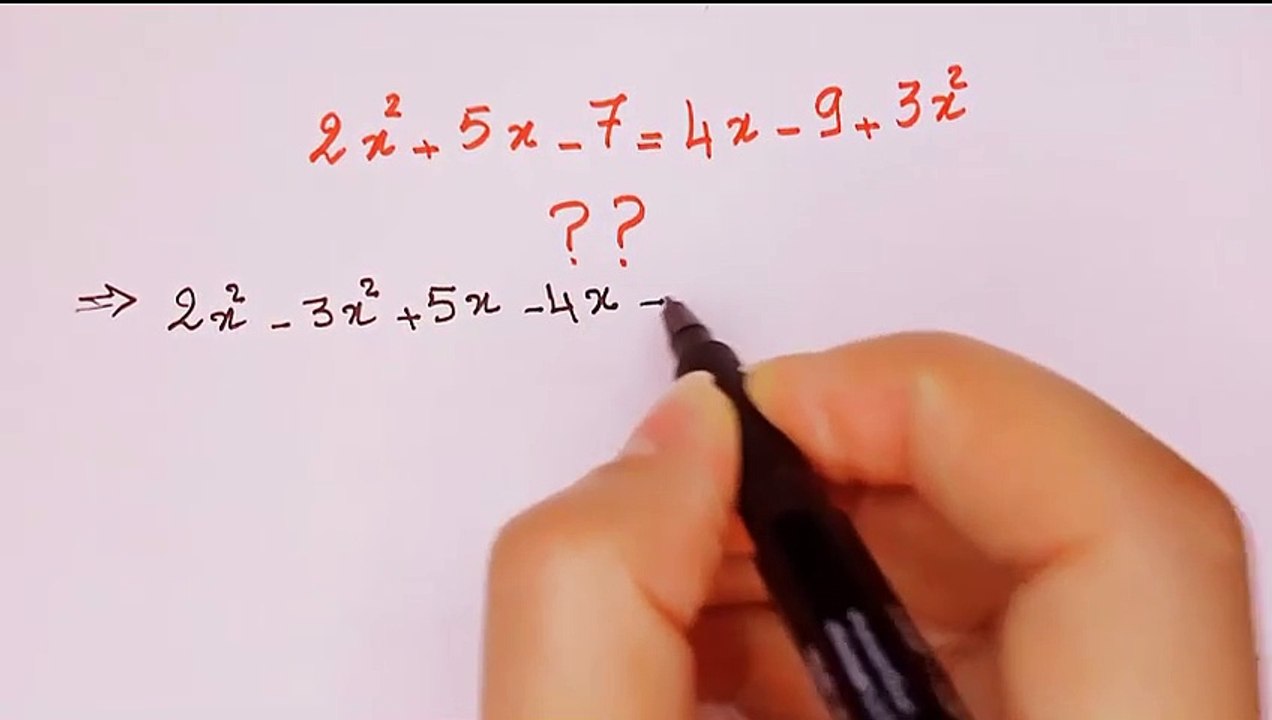 2x² + 5x - 7 = 4x - 9 + 3x²
??
⇒ 2x² - 3x² + 5x - 4x -